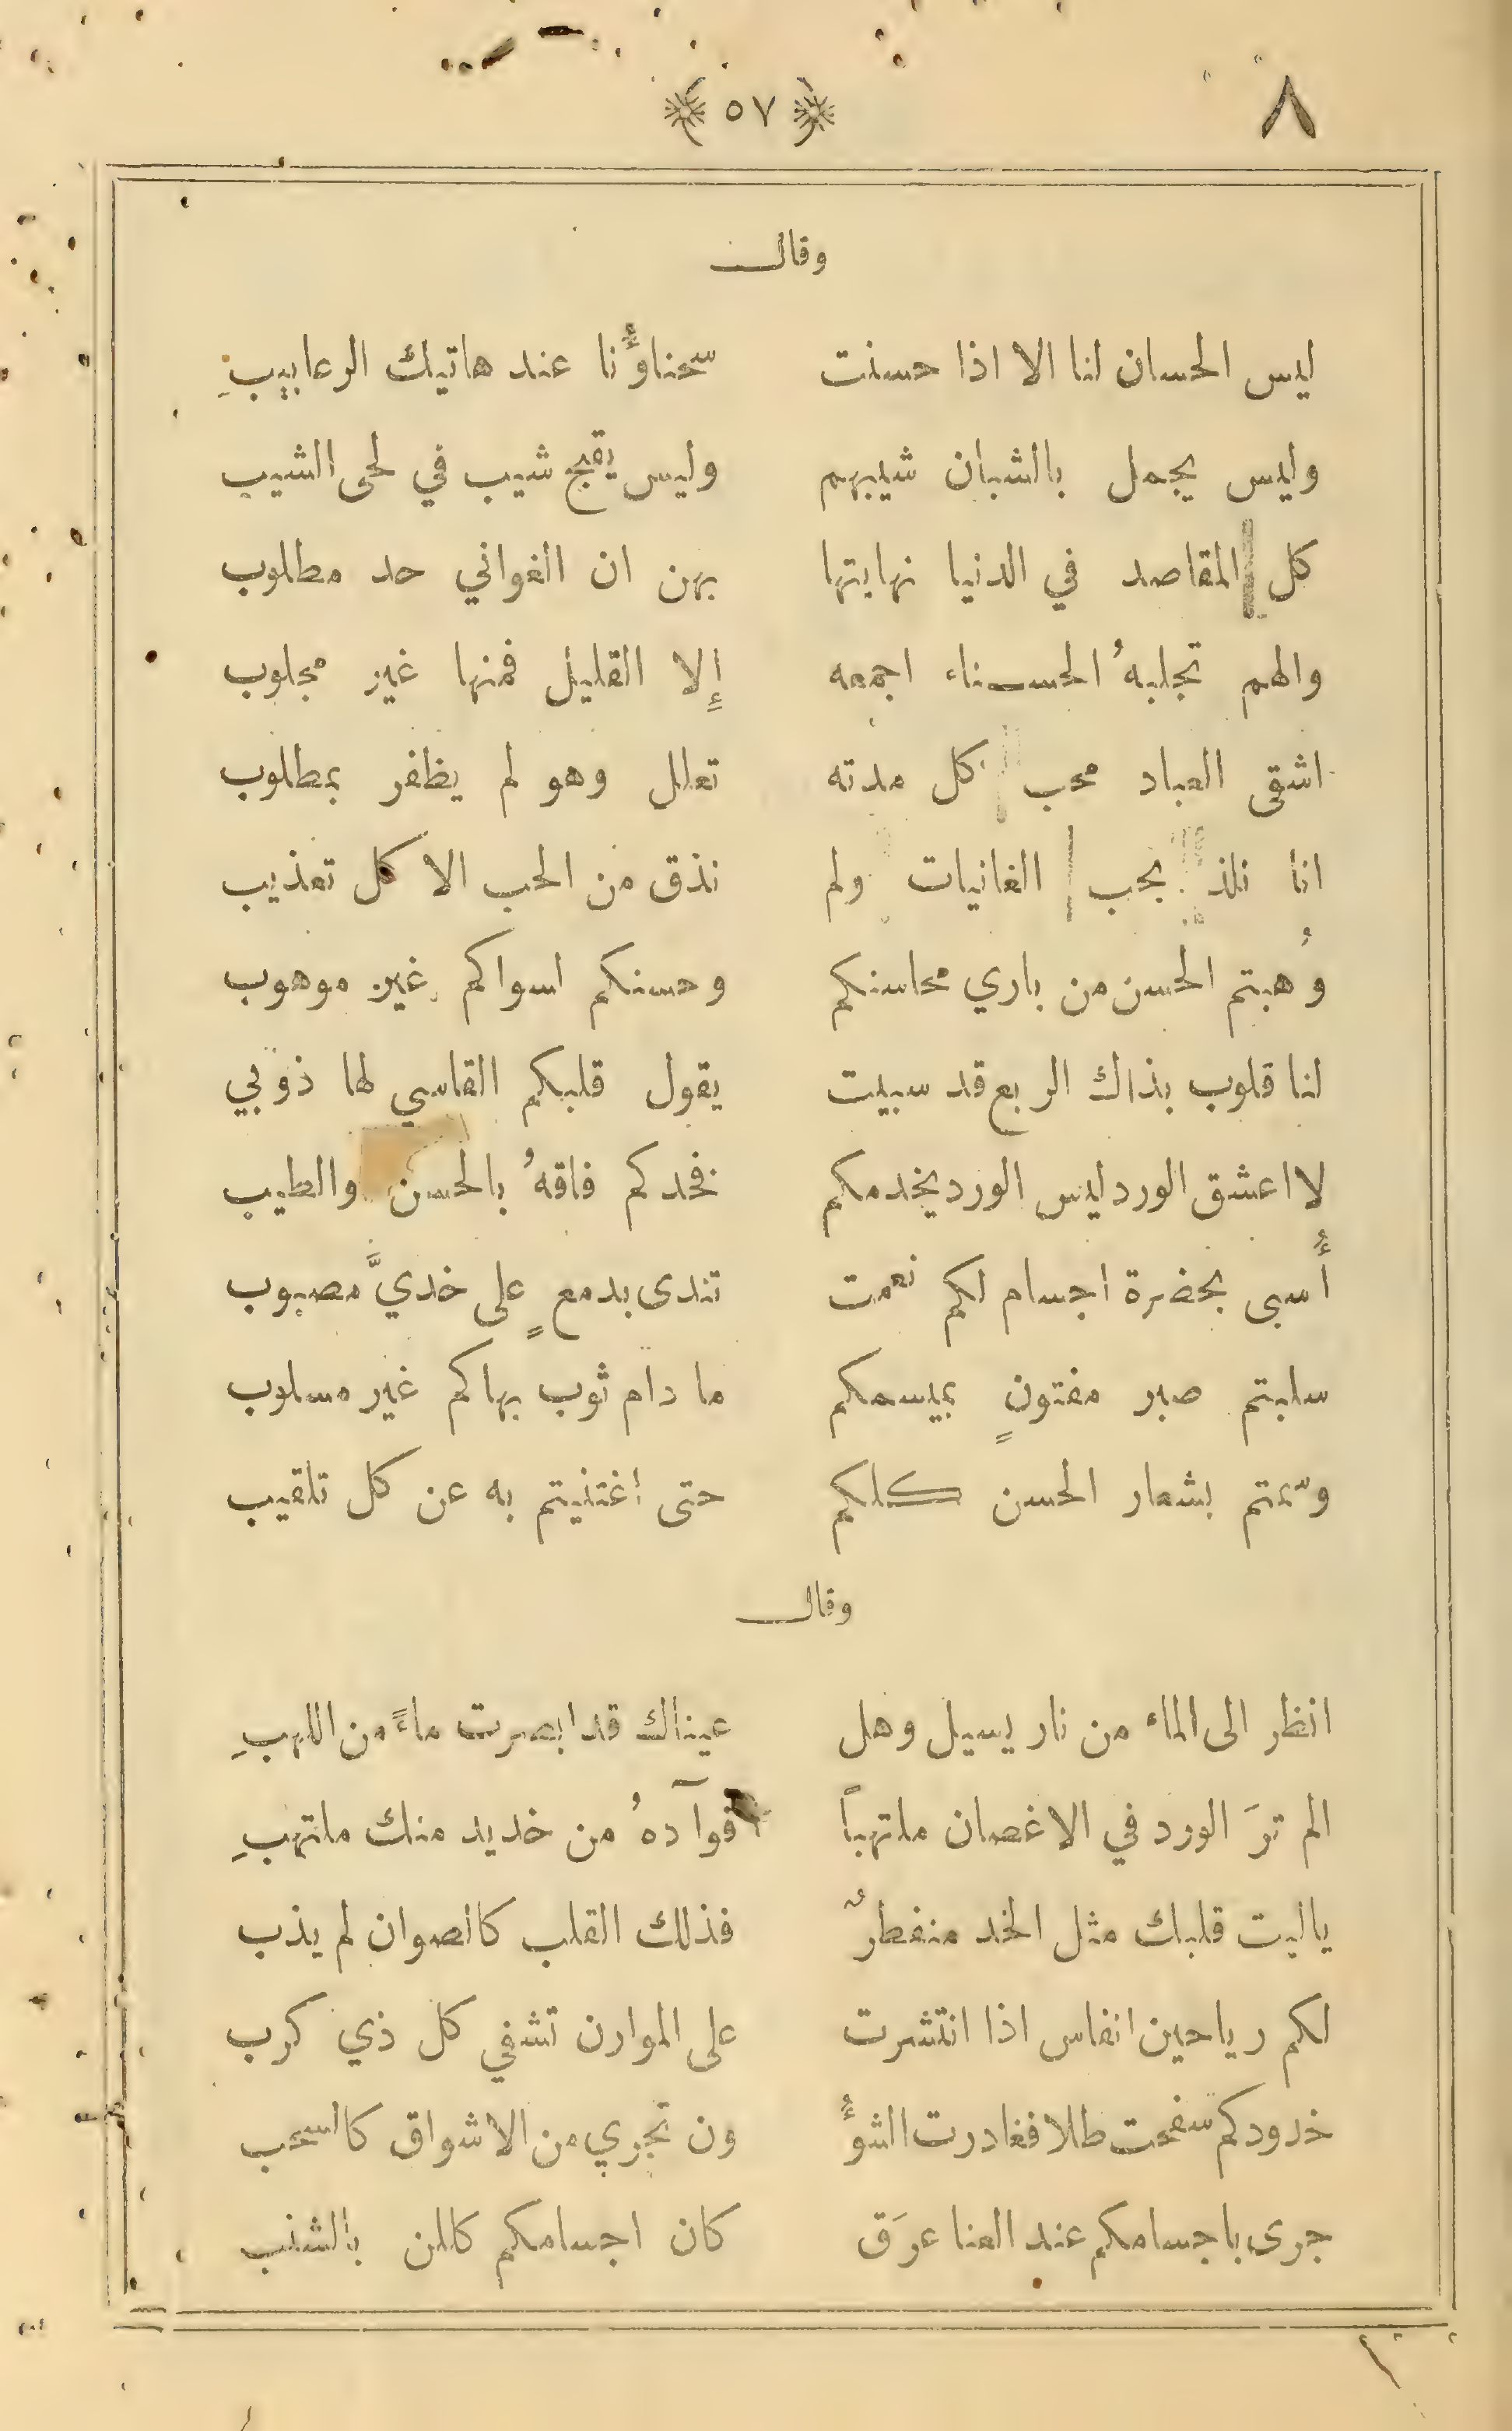 ٨ ﴿ ٥٧ ﴾
وقال
ليس الحسان لنا الا اذا حسنت سحناؤُنا عند هاتيك الرعابيبِ
وليس يجمل بالشبان شيبهم وليس يقبح شيب في لحى الشيب
كل المقاصد في الدنيا نهايتها بهن ان الغواني حد مطلوب
والهم تجلبهُ الحسناء اجمعه إلا القليل فمنها غير مجلوب
اشقى العباد محب كل مدته تعلل وهو لم يظفر بمطلوب
انا نلذ بحب الغانيات ولم نذق من الحب الا كل تعذيب
وُهبتم الحسن من باري محاسنكم وحسنكم لسواكم غير موهوب
لنا قلوب بذاك الربع قد سبيت يقول قلبكم القاسي لها ذوبي
لا اعشق الورد ليس الورد يخدمكم فخدكم فاقهُ بالحسن والطيب
أُسبى بحضرة اجسام لكم نعمت تندى بدمعٍ على خديَّ مصبوب
سلبتم صبر مفتونٍ بميسمكم ما دام ثوب بهاكم غير مسلوب
وسمتم بشعار الحسن كلكم حتى اغتنيتم به عن كل تلقيب
وقال
انظر الى الماء من نار يسيل وهل عيناك قد ابصرت ماءً من اللهبِ
الم ترَ الورد في الاغصان ملتهباً فوآدهُ من خديد منك ملتهبِ
ياليت قلبك مثل الخد منفطرٌ فذلك القلب كالصوان لم يذب
لكم رياحين انفاس اذا انتشرت على الموارن تشفي كل ذي كرب
خدودكم سفحت طلا فغادرت الشؤُ ون تجري من الاشواق كالسحب
جرى باجسامكم عند العنا عرَق كان اجسامكم كاللن بالشنب